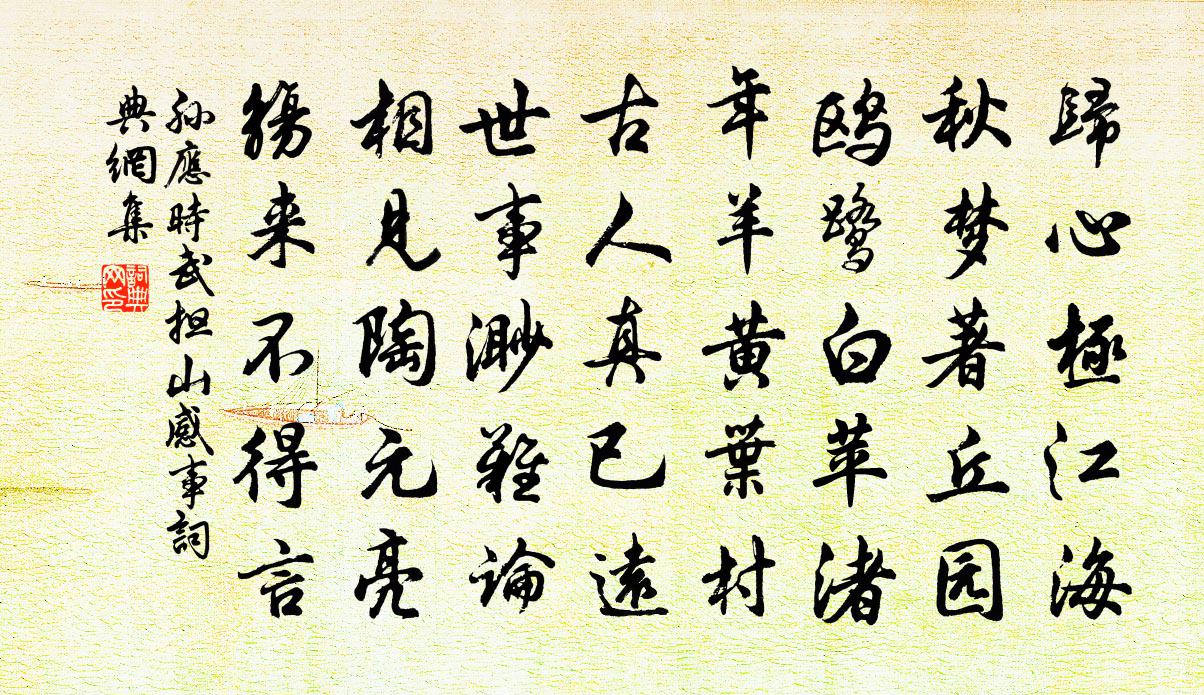 歸心極江海
秋梦著丘园
鸥鹭白苹渚
年羊黄葉村
古人真已遠
世事渺難論
相見陶元亮
觴来不得言
孫應時武担山感事詞
典網集
詞典网印